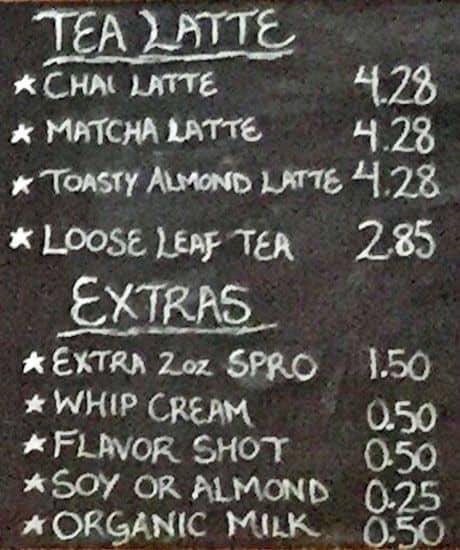 TEA LATTE
★ CHAI LATTE 4.28
★ MATCHA LATTE 4.28
★ TOASTY ALMOND LATTE 4.28
★ LOOSE LEAF TEA 2.85
EXTRAS
★ EXTRA 2oz SPRO 1.50
★ WHIP CREAM 0.50
★ FLAVOR SHOT 0.50
★ SOY OR ALMOND 0.25
★ ORGANIC MILK 0.50